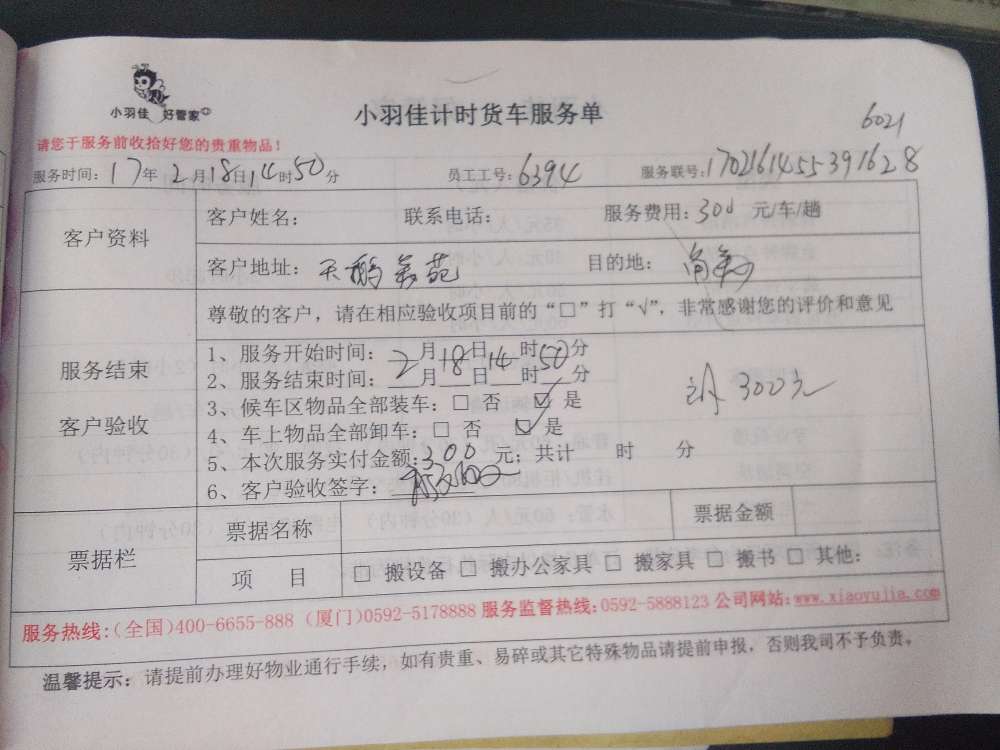 小羽佳 好管家
小羽佳计时货车服务单
6021
请您于服务前收拾好您的贵重物品！
服务时间：17年2月18日14时50分 员工工号：6394 服务联号：1702161455391628
客户资料
客户姓名： 联系电话： 服务费用：300 元/车/趟
客户地址：天鹅美苑 目的地：
尊敬的客户，请在相应验收项目前的“□”打“√”，非常感谢您的评价和意见
服务结束
客户验收
1、服务开始时间：2月18日14时50分
2、服务结束时间：__月__日__时__分
3、候车区物品全部装车：□ 否 ☑ 是
4、车上物品全部卸车：□ 否 ☑ 是
300元
5、本次服务实付金额：300 元；共计 时 分
6、客户验收签字：
票据栏
票据名称 票据金额
项 目 □ 搬设备 □ 搬办公家具 □ 搬家具 □ 搬书 □ 其他：
服务热线：(全国)400-6655-888 (厦门)0592-5178888 服务监督热线：0592-5888123 公司网站：www.xiaoyujia.com
温馨提示：请提前办理好物业通行手续，如有贵重、易碎或其它特殊物品请提前申报，否则我司不予负责。